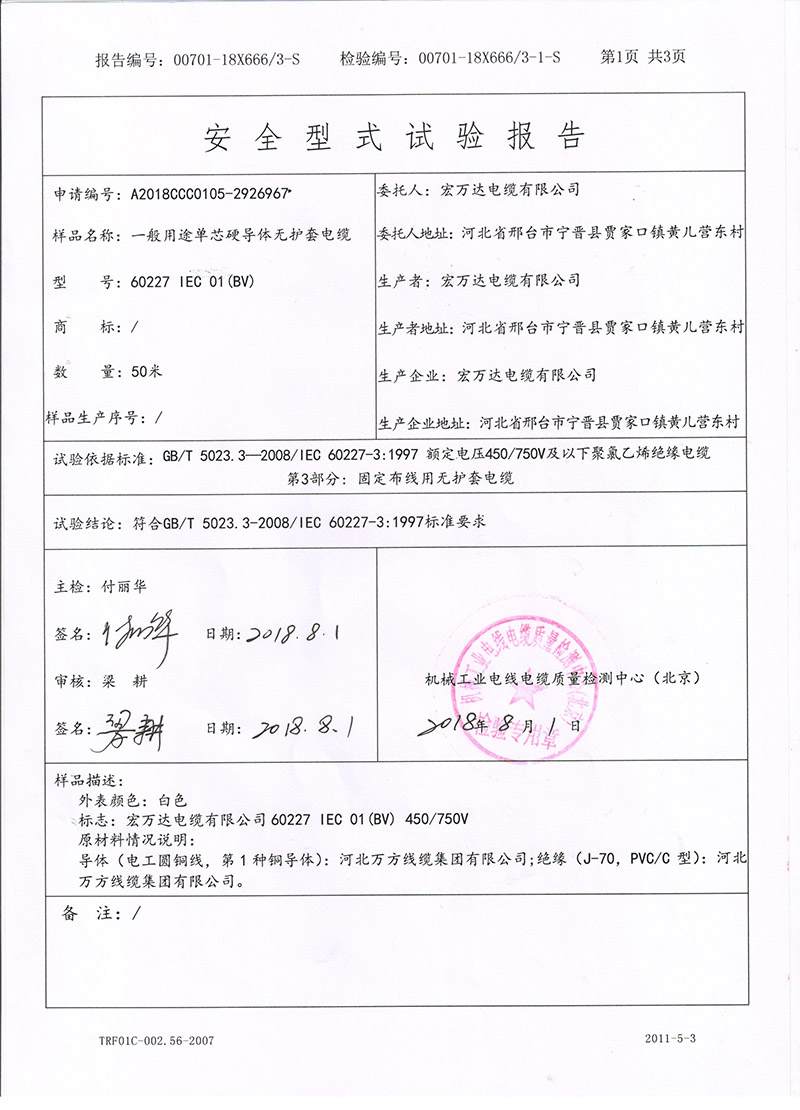 报告编号：00701-18X666/3-S 检验编号：00701-18X666/3-1-S 第1页 共3页
安全型式试验报告
申请编号：A2018CCC0105-2926967*
样品名称：一般用途单芯硬导体无护套电缆
型 号：60227 IEC 01(BV)
商 标：/
数 量：50米
样品生产序号：/
委托人：宏万达电缆有限公司
委托人地址：河北省邢台市宁晋县贾家口镇黄儿营东村
生产者：宏万达电缆有限公司
生产者地址：河北省邢台市宁晋县贾家口镇黄儿营东村
生产企业：宏万达电缆有限公司
生产企业地址：河北省邢台市宁晋县贾家口镇黄儿营东村
试验依据标准：GB/T 5023.3—2008/IEC 60227-3:1997 额定电压450/750V及以下聚氯乙烯绝缘电缆
第3部分：固定布线用无护套电缆
试验结论：符合GB/T 5023.3-2008/IEC 60227-3:1997标准要求
主检：付丽华
签名：付丽华 日期：2018.8.1
审核：梁 耕
签名：梁耕 日期：2018.8.1
机械工业电线电缆质量检测中心（北京）
2018年8月1日
机械工业电线电缆质量检测中心(北京)
检验专用章
样品描述：
外表颜色：白色
标志：宏万达电缆有限公司 60227 IEC 01(BV) 450/750V
原材料情况说明：
导体（电工圆铜线，第1种铜导体）：河北万方线缆集团有限公司;绝缘（J-70，PVC/C 型）：河北
万方线缆集团有限公司。
备 注：/
TRF01C-002.56-2007 2011-5-3